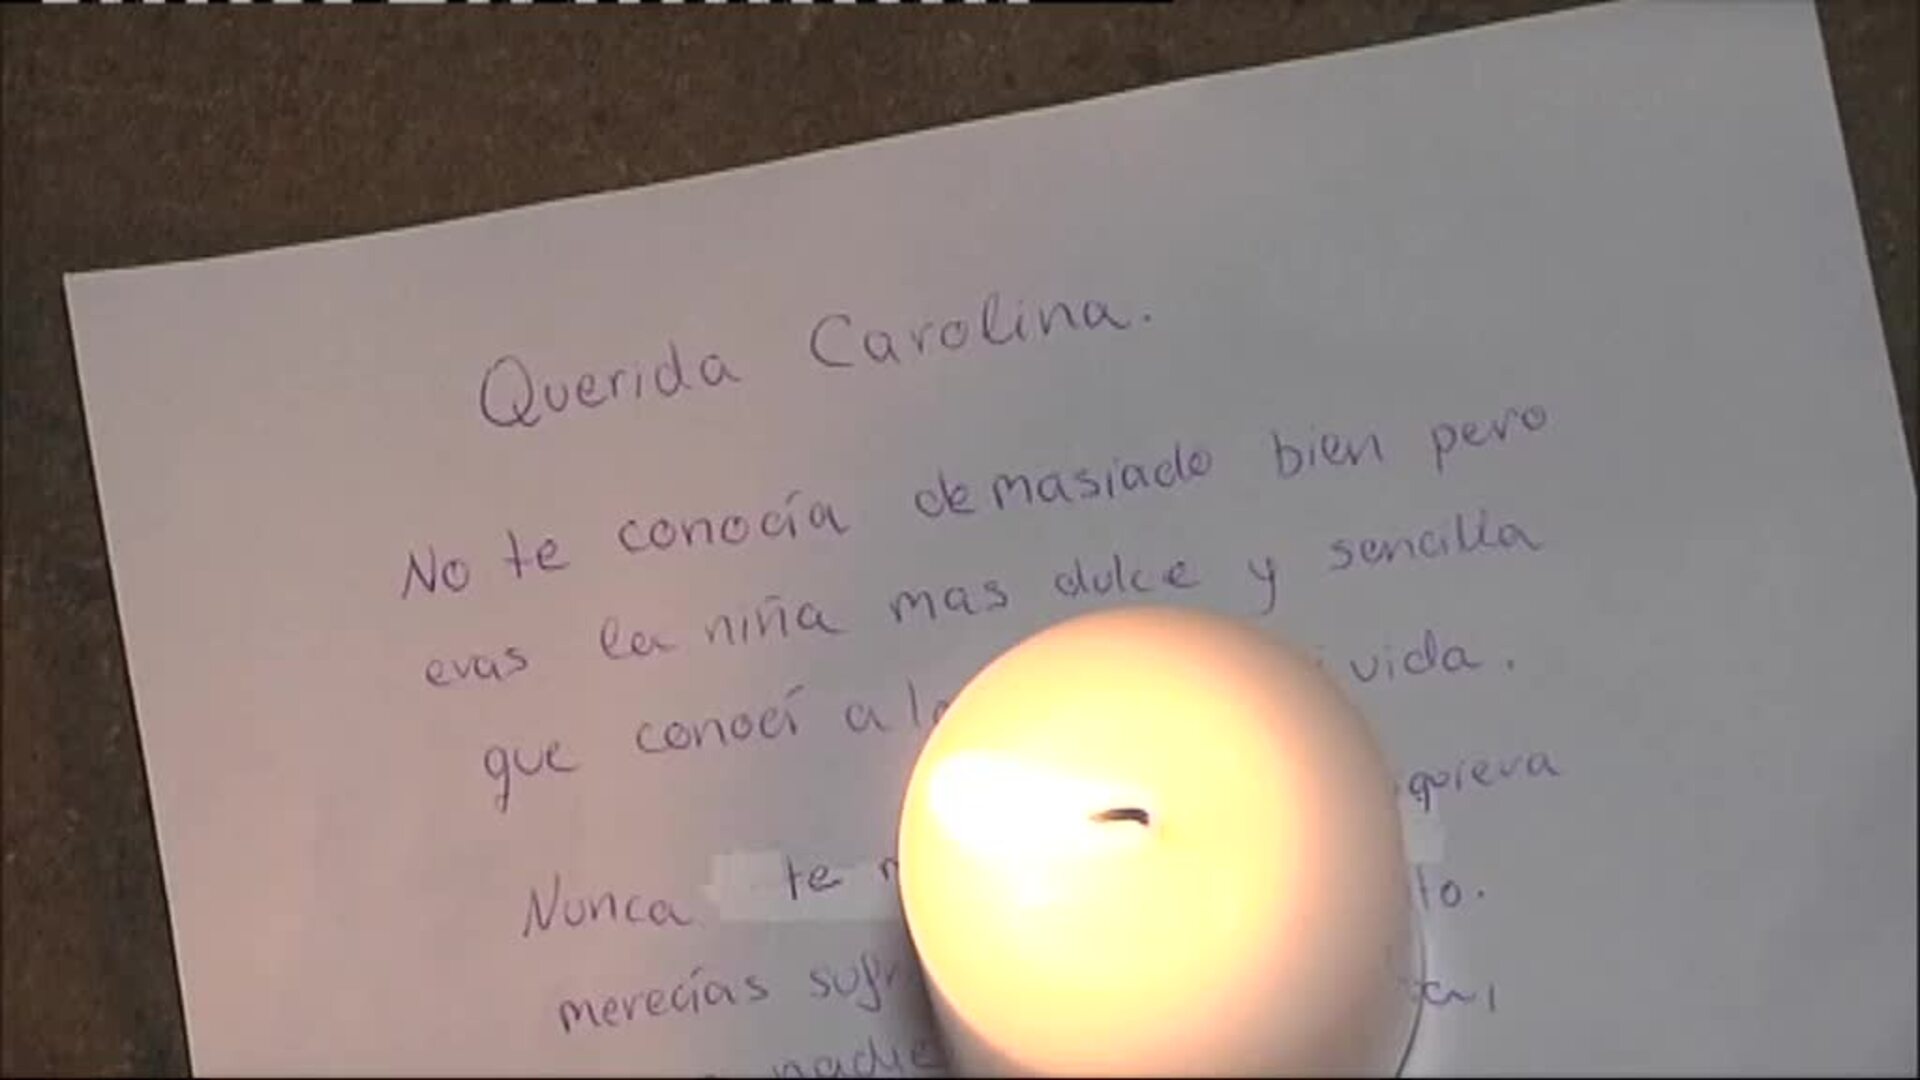 Querida Carolina.
No te conocía demasiado bien pero
eras la niña mas dulce y sencilla
que conocí a vida.
quiera
Nunca te
merecías
nadie